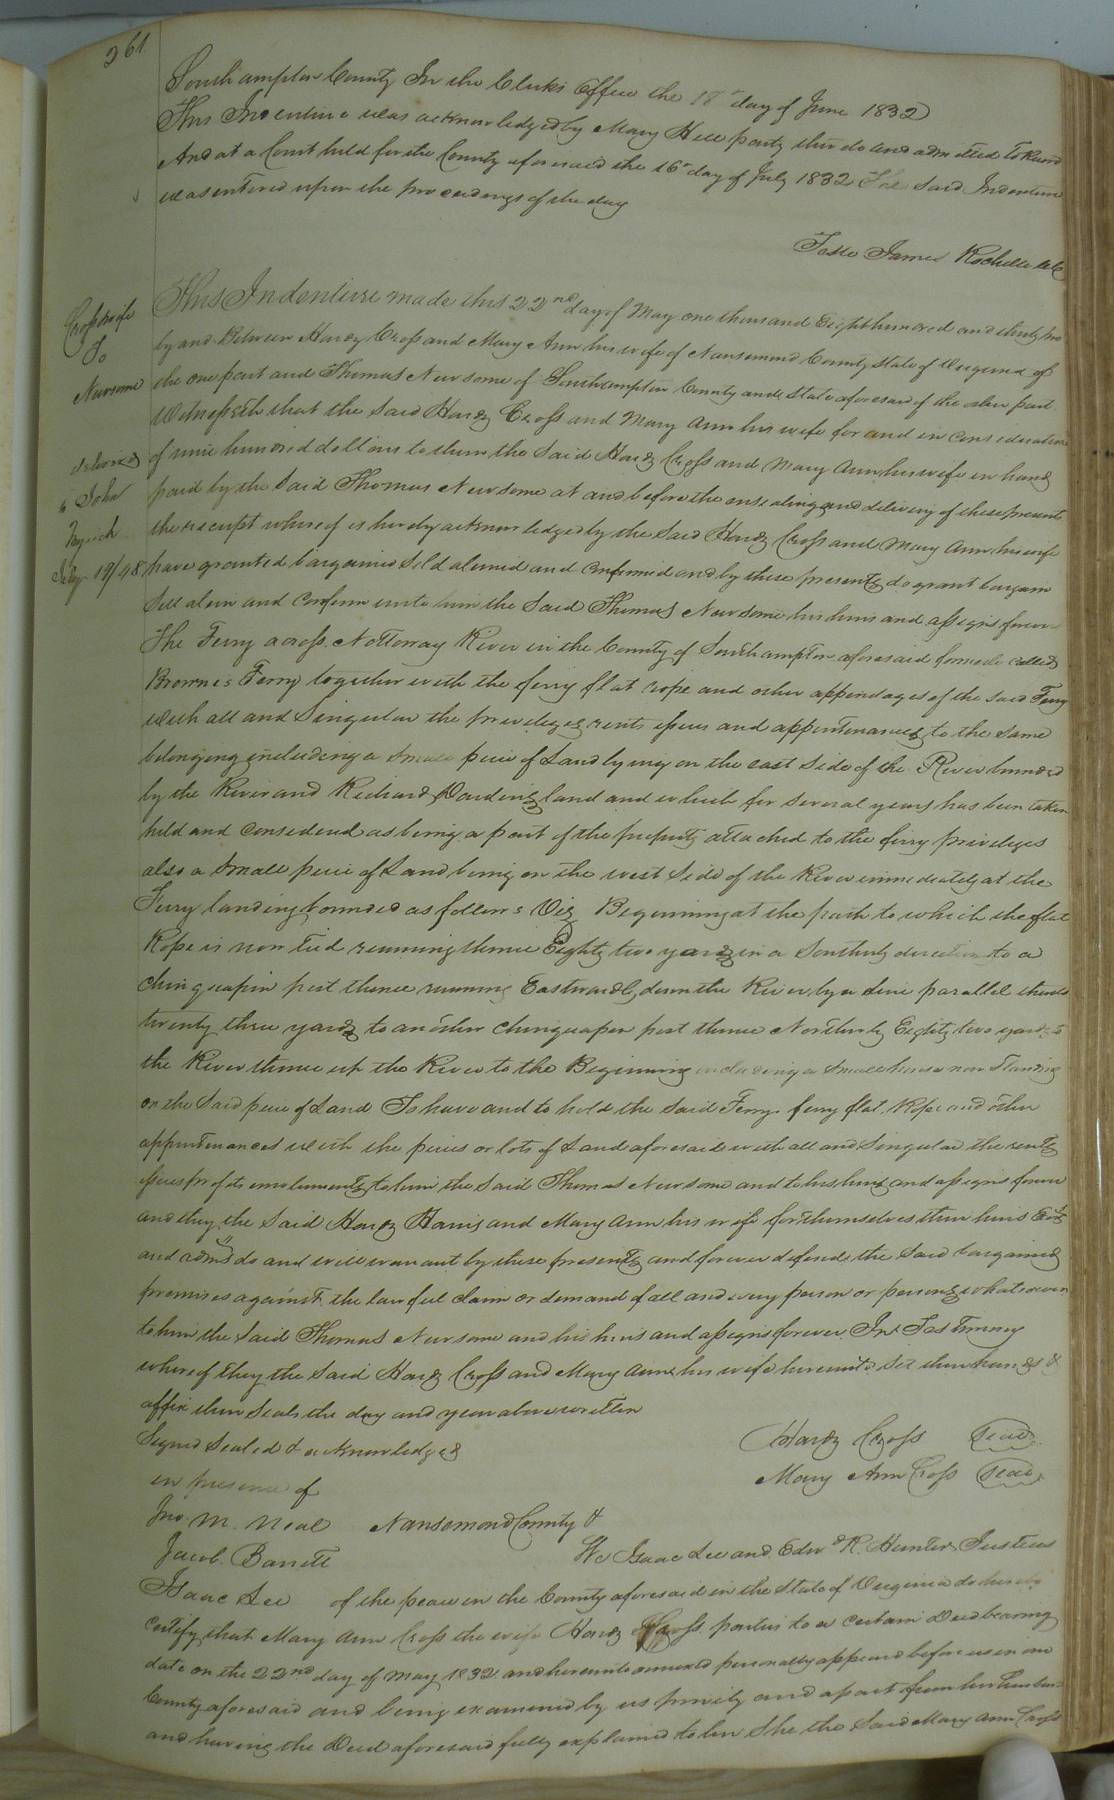 261
Southampton County In the Clerks Office the 18th day of June 1832
This Indenture was acknowledged by Mary Hill party thereto and admitted to Record
And at a Court held for the County aforesaid the 16th day of July 1832 The Said Indenture
was entered upon the proceedings of the day
Teste James Rochelle
Cross & wife
To
Newsome
delivered
to John
July 19/48
This Indenture made this 22nd day of May one thousand Eight hundred and thirty two
by and Between Hardy Cross and Mary Ann his wife of Nansemond County State of Virginia of
the one part and Thomas Newsome of Southampton County and State aforesaid of the other part
Witnesseth that the Said Hardy Cross and Mary Ann his wife for and in consideration
of nine hundred dollars to them the Said Hardy Cross and Mary Ann his wife in hand
paid by the Said Thomas Newsome at and before the ensealing and delivery of these presents
the receipt whereof is hereby acknowledged by the Said Hardy Cross and Mary Ann his wife
have granted bargained Sold aliened and confirmed and by these presents do grant bargain
Sell alien and confirm unto him the Said Thomas Newsome his heirs and assigns forever
The Ferry across Nottoway River in the County of Southampton aforesaid formerly called
Browne's Ferry together with the ferry flat rope and other appendages of the Said Ferry
with all and Singular the privileges rents issues and appurtenances to the Same
belonging including a Small piece of Land lying on the east Side of the River bounded
by the River and Richard Dardens land and which for Several years has been taken
held and considered as being a part of the property attached to the ferry privileges
also a Small piece of Land being on the west Side of the River immediately at the
Ferry landing bounded as follows Viz Beginning at the path to which the flat
Rope is now tied running thence Eighty two yards in a Southerly direction to a
Chinquapin post thence running Eastwardly down the River by a line parallel thereto
twenty three yards to another chinquapen post thence Northerly Eighty two yards to
the River thence up the River to the Beginning including a Small house now Standing
on the Said piece of Land To have and to hold the Said Ferry ferry flat Rope and other
appurtenances with the pieces or lots of Land aforesaid with all and Singular the rents
issues profits emoluments to him the Said Thomas Newsome and to his heirs and assigns forever
and they the Said Hardy Harris and Mary Ann his wife for themselves their heirs Exrs
and admrs do and will warrant by these presents and forever defend the Said bargained
premises against the lawful claim or demand of all and every person or persons whatsoever
to him the Said Thomas Newsome and his heirs and assigns forever In Testimony
whereof they the Said Hardy Cross and Mary Ann his wife hereunto Set their hands &
affix their Seals the day and year above written
Signed Sealed & acknowledged
in presence of
Hardy Cross Seal
Mary Ann Cross Seal
Jno. M. Neal
Jacob Barrett
Isaac Lee
Nansemond County &
We Isaac Lee and Edwd R. Hunter Justices
of the peace in the County aforesaid in the State of Virginia do hereby
certify that Mary Ann Cross the wife Hardy Cross parties to a certain Deed bearing
date on the 22nd day of May 1832 and hereunto annexed personally appeared before us in our
County aforesaid and being examined by us privily and apart from her husband
and having the Deed aforesaid fully explained to her She the Said Mary Ann Cross